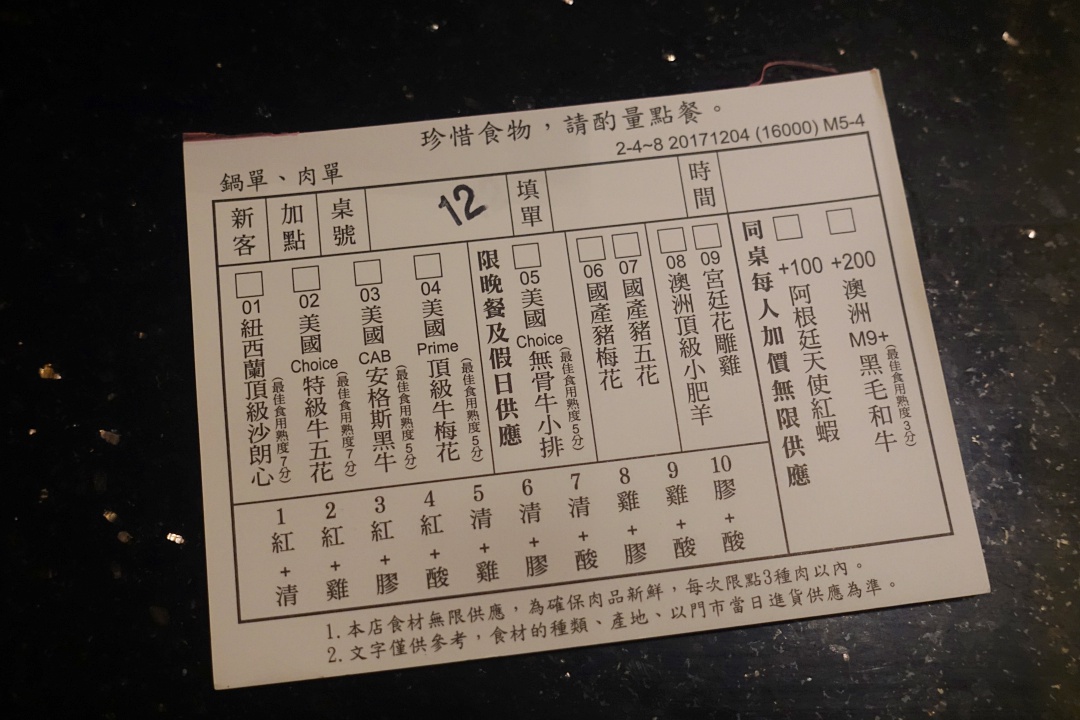 珍惜食物，請酌量點餐。
2-4~8 20171204 (16000) M5-4
鍋單、肉單
新客 加點 桌號 12 填單 時間
01 紐西蘭頂級沙朗心 (最佳食用熟度7分)
02 美國Choice特級牛五花 (最佳食用熟度7分)
03 美國CAB安格斯黑牛 (最佳食用熟度5分)
04 美國Prime頂級牛梅花 (最佳食用熟度5分)
限晚餐及假日供應
05 美國Choice無骨牛小排 (最佳食用熟度5分)
06 國產豬梅花
07 國產豬五花
08 澳洲頂級小肥羊
09 宮廷花雕雞
同桌每人加價無限供應
+100 阿根廷天使紅蝦
+200 澳洲M9+黑毛和牛 (最佳食用熟度3分)
1 紅+清
2 紅+雞
3 紅+膠
4 紅+酸
5 清+雞
6 清+膠
7 清+酸
8 雞+膠
9 雞+酸
10 膠+酸
1. 本店食材無限供應，為確保肉品新鮮，每次限點3種肉以內。
2. 文字僅供參考，食材的種類、產地、以門市當日進貨供應為準。